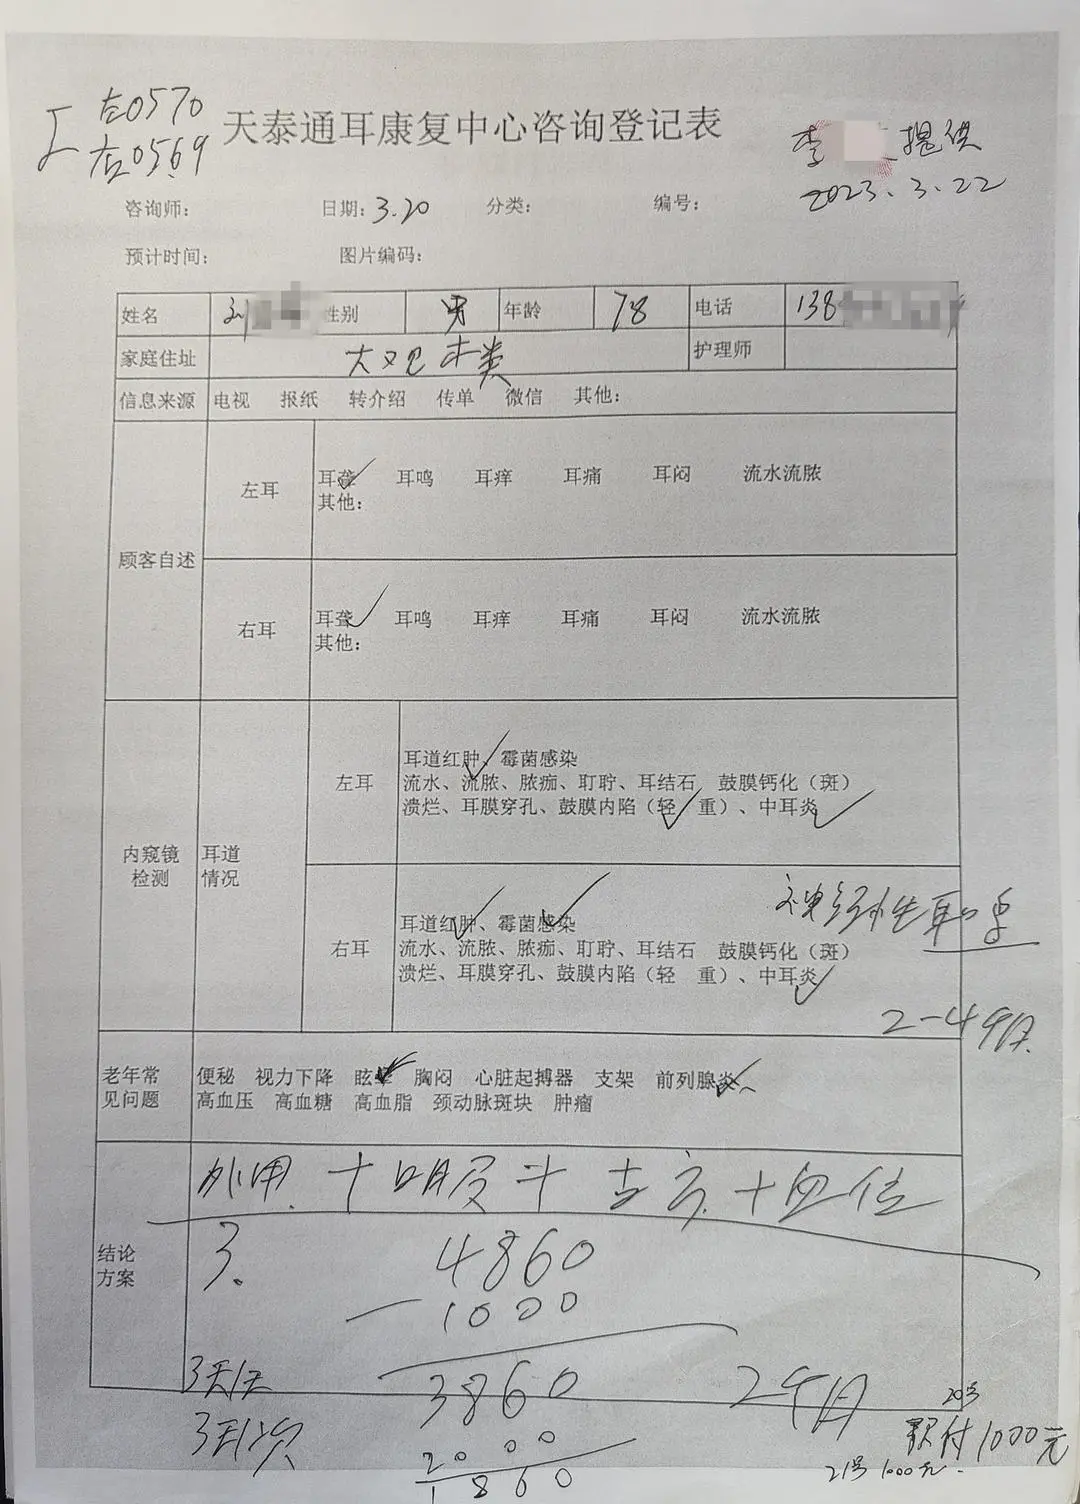 左0570
右0569
天泰通耳康复中心咨询登记表
李 提供
2023.3.22
咨询师: 日期: 3.20 分类: 编号:
预计时间: 图片编码:
姓名 性别 男 年龄 78 电话 138
家庭住址 护理师
信息来源 电视 报纸 转介绍 传单 微信 其他:
顾客自述
左耳
耳聋 耳鸣 耳痒 耳痛 耳闷 流水流脓
其他:
右耳
耳聋 耳鸣 耳痒 耳痛 耳闷 流水流脓
其他:
内窥镜检测
耳道情况
左耳
耳道红肿、霉菌感染
流水、流脓、脓痂、耵聍、耳结石 鼓膜钙化（斑）
溃烂、耳膜穿孔、鼓膜内陷（轻 重）、中耳炎
右耳
耳道红肿、霉菌感染
流水、流脓、脓痂、耵聍、耳结石 鼓膜钙化（斑）
溃烂、耳膜穿孔、鼓膜内陷（轻 重）、中耳炎
神经性耳聋
2-4个月
老年常见问题
便秘 视力下降 眩晕 胸闷 心脏起搏器 支架 前列腺炎
高血压 高血糖 高血脂 颈动脉斑块 肿瘤
结论方案
外用 + 口服 + + 血位
3.
4860
- 1000
3860
2000
1860
3天/次
2个月
20号
付1000元
21号 1000元.